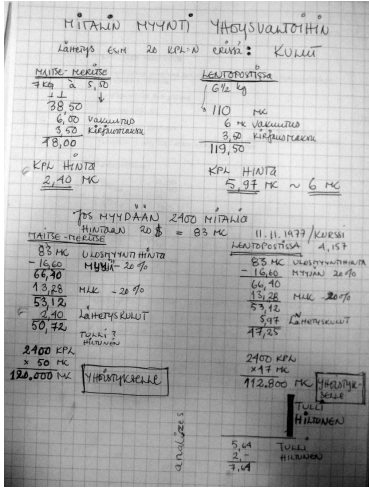 MITALIN MYYNTI YHDYSVALTOIHIN
LÄHETYS ESIM 20 KPL-N ERISSÄ: KULUT
MAITSE-MERITSE
7 kg à 5,50
38,50
6,00 vakuutus
3,50 kirjausmaksu
48,00
KPL HINTA
2,40 MK
LENTOPOSTISSA
6½ kg
110 MK
6 MK vakuutus
3,50 kirjausmaksu
119,50
KPL HINTA
5,97 MK ~ 6 MK
JOS MYYDÄÄN 2400 MITALIA
HINTAAN 20 $ = 83 MK
11.11.1977/KURSSI
4,157
MAITSE-MERITSE
83 MK ULOSMYYNTIHINTA
- 16,60 MYYJÄ - 20%
66,40
13,28 MLK - 20%
53,12
2,40 LÄHETYSKULUT
50,72
TULLI ?
HILTUNEN
2400 KPL
x 50 MK
120.000 MK YHDISTYKSELLE
LENTOPOSTISSA
83 MK ULOSMYYNTIHINTA
- 16,60 MYYJÄN 20%
66,40
13,28 MLK - 20%
53,12
5,97 LÄHETYSKULUT
47,25
2400 KPL
x 47 MK
112.800 MK YHDISTYKSELLE
TULLI
HILTUNEN
5,64 TULLI
2,- HILTUNEN
7,64